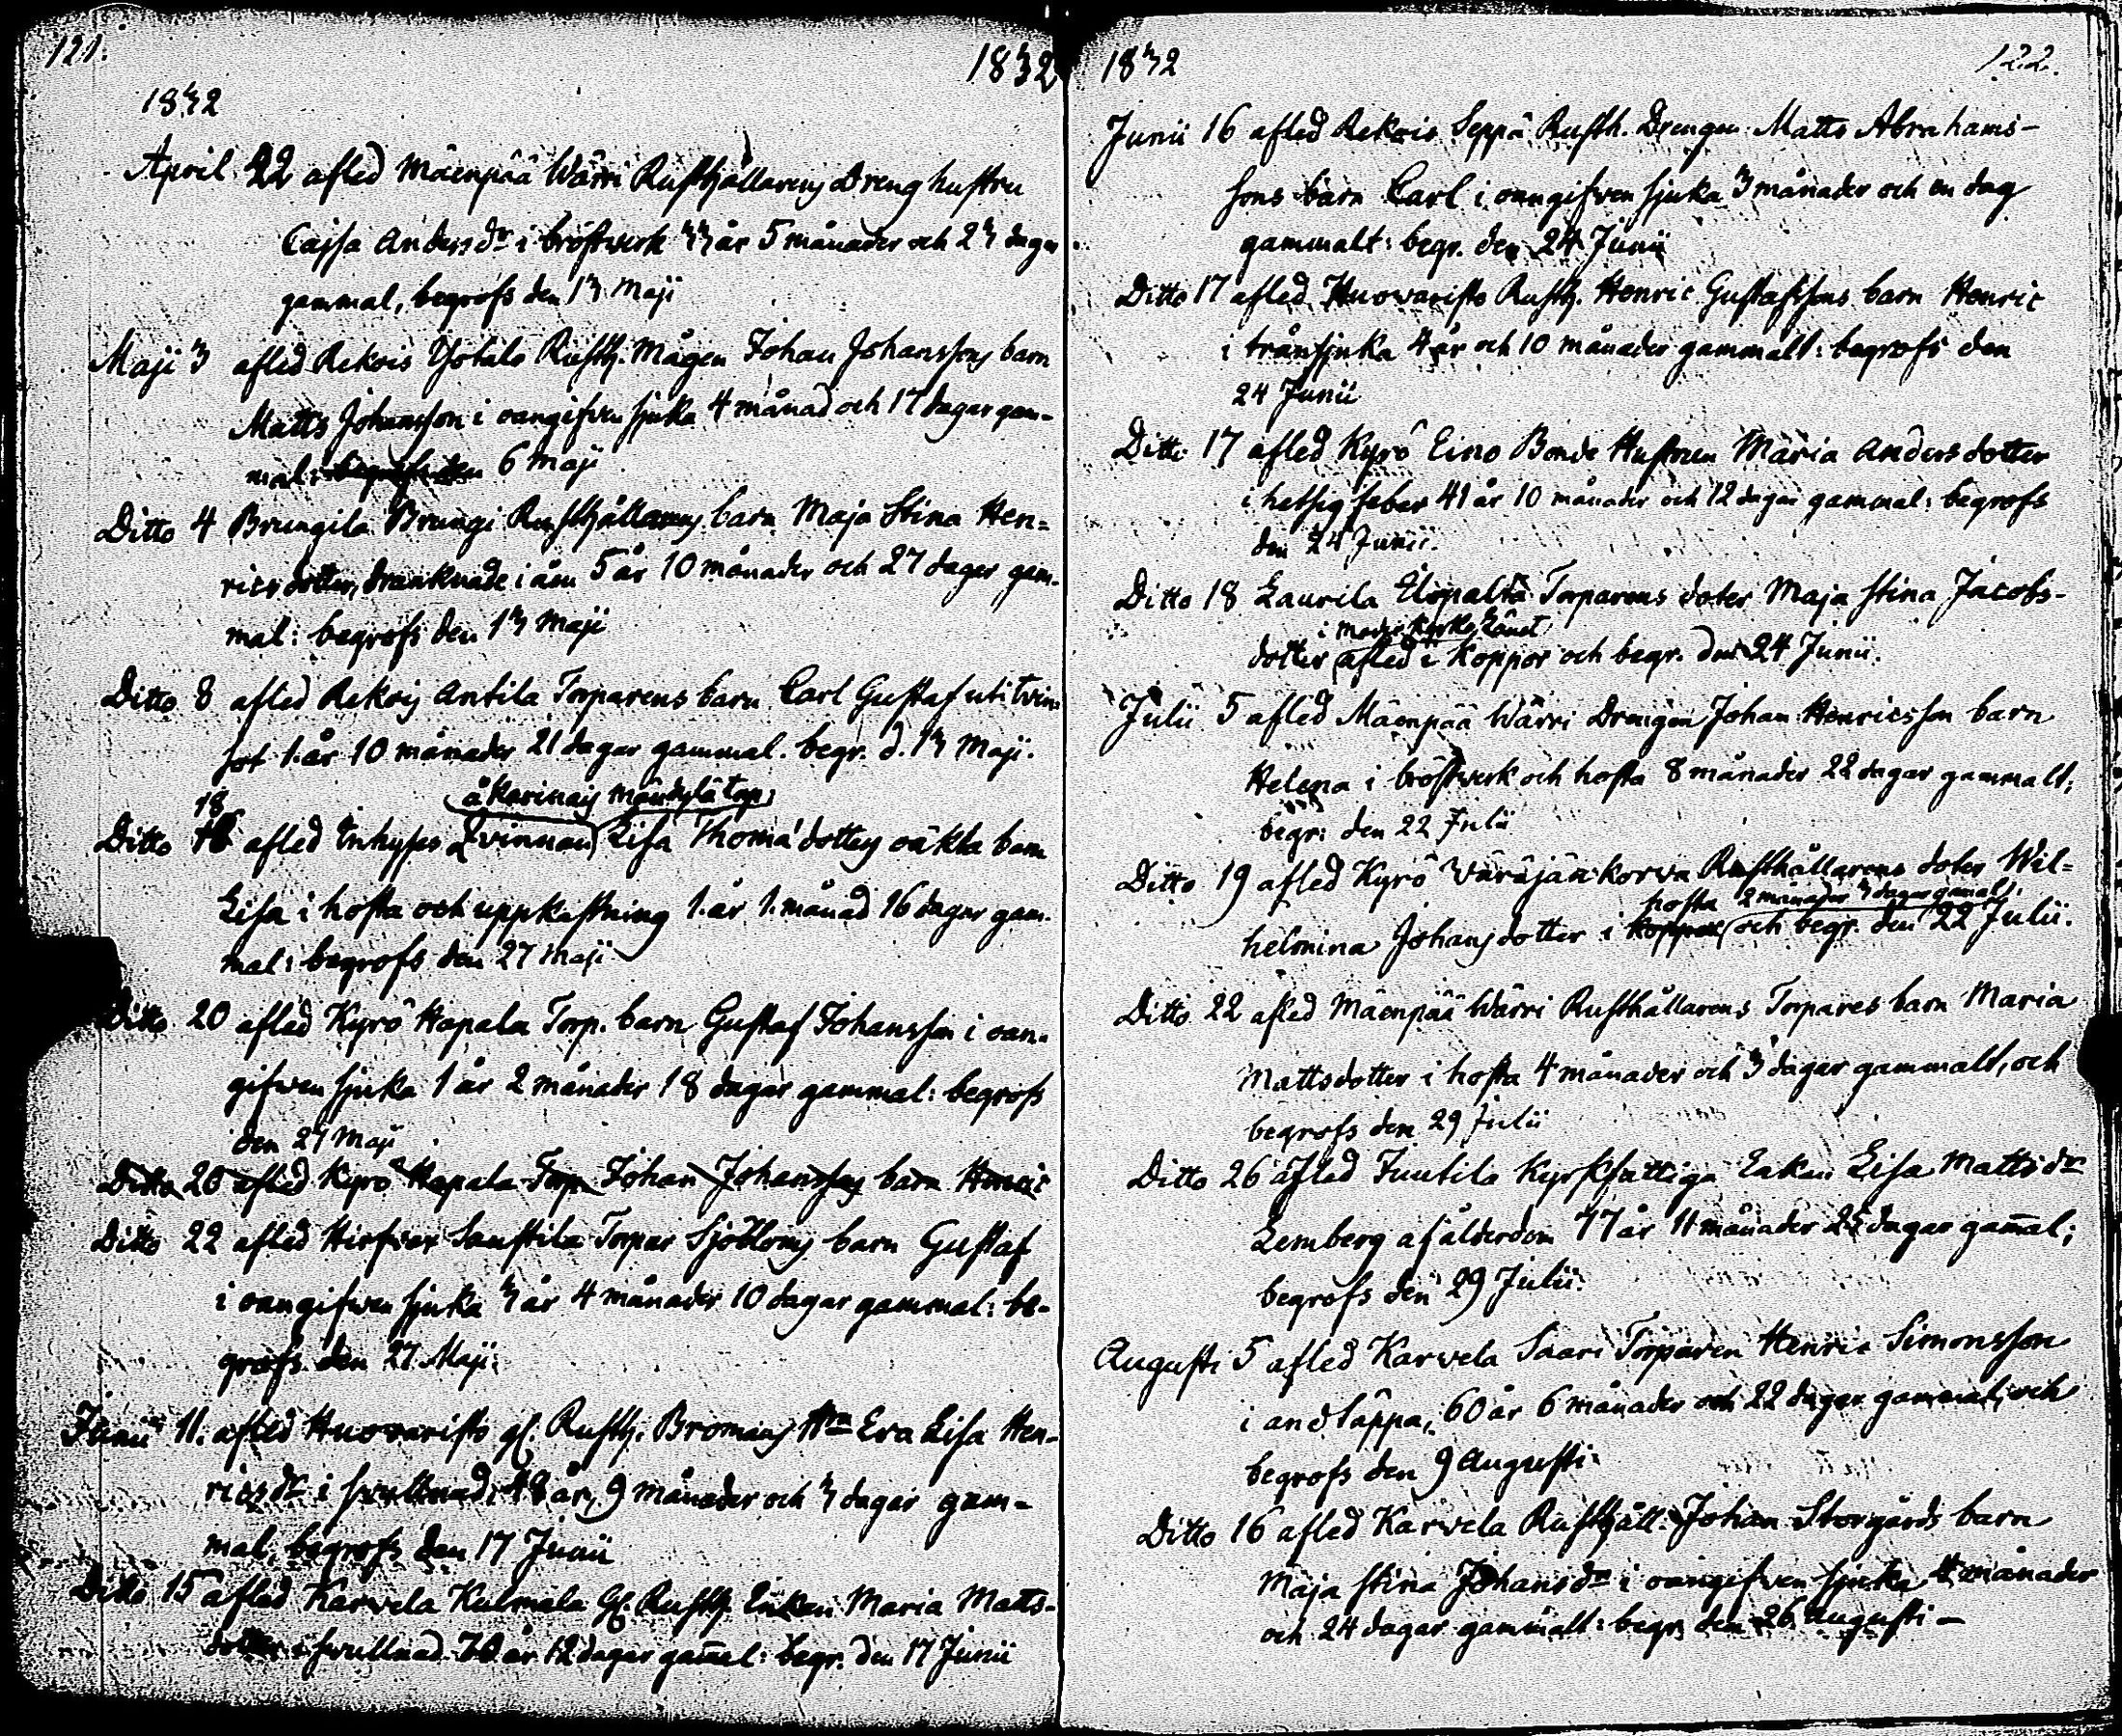 121.
1832
1832
April 22 afled Mäenpää Wärri Rusthållarens Dreng hustru
Cajsa Anders dr i bröstwerk 33 år 5 månader och 23 dagar
gammal, begrofs den 13 Maji
Maji 3 afled Rekois Yrötalo Rusth. Mågen Johan Johanssons barn
Matts Johansson i oangifwen sjuka 4 månad och 17 dagar gam-
mal: begrofs den 6 Maji
Ditto 4 Brungila Brungi Rusthållarens barn Maja Stina Hen-
rics dotter, drunknade i åen 5 år 10 månader och 27 dagar gam-
mal: begrofs den 13 Maji
Ditto 8 afled Rekois Antila Torparens barn Carl Gustaf uti twin-
sot 1. år 10 månader 21 dagar gammal. begr. d. 13 Maji.
å Karinais Mändylä Torp
Ditto 18 afled Inhyses Qvinnan Lisa Thomä dotters oäkta barn
Lisa i hosta och uppkastning 1. år 1. månad 16 dagar gam-
mal: begrofs den 27 Maji
Ditto 20 afled Kyrö Hapala Torp. barn Gustaf Johansson i oan-
gifwen sjuka 1 år 2 månader 18 dagar gammal: begrofs
den 27 Maji
Ditto 20 afled Kyrö Hapala Torp. Johan Johanssons barn Henric
Ditto 22 afled Hirfwox Sanftila Torpar Sjöbloms barn Gustaf
i oangifwen sjuka 3 år 4 månader 10 dagar gammal: be-
grofs den 27 Maji.
Junii 11. afled Huovaristo gl. Rusth. Bromans Hru Eva Lisa Hen-
rics dr i swullnad, 48 år, 9 månader och 3 dagar gam-
mal, begrofs den 17 Junii
Ditto 15 afled Karvela Kulmala Gl. Rusth. Enkan Maria Matts-
dotter i swullnad 70 år 12 dagar gam̄al: begr. den 17 Junii
1832
122.
Junii 16 afled Rekois Seppä Rusth. Drengen Matts Abrahams-
sons barn Carl i oangifwen sjuka 3 månader och en dag
gammalt: begr. den 24 Junii
Ditto 17 afled Huovaristo Rusth. Henric Gustafssons barn Henric
i trånsjuka 4 år och 10 månader gammalt: begrofs den
24 Junii
Ditto 17 afled Kyrö Eino Bonde Hustrun Maria Andersdotter
i hetsig feber 41 år 10 månader och 12 dagar gammal: begrofs
den 24 Junii.
Ditto 18 Laurila Torparens doter Maja Stina Jacobs-
i
dotter afled i Koppor och begr. den 24 Junii.
Julii 5 afled Mäenpää Wärri Drengen Johan Henricsson barn
Helena i bröstwerk och hosta 8 månader 22 dagar gammalt;
begr: den 22 Julii
Ditto 19 afled Kyrö Väräjänkorva Rusthållarens doter Wil-
hosta 2 månader 3 dagar gamalt.
helmina Johansdotter i koppor och begr. den 22 Julii.
Ditto 22 afled Mäenpää Wärri Rusthållarens Torpares barn Maria
Mattsdotter i hosta 4 månader och 3 dagar gammalt, och
begrofs den 29 Julii
Ditto 26 afled Juutila Kyrkfattiga Enkan Lisa Matts dr
Lemberg af ålderdom 77 år 11 månader 25 dagar gam̄al;
begrofs den 29 Julii.
Augusti 5 afled Karvela Saari Torparen Henric Simonsson
i andtäppa, 60 år 6 månader och 22 dagar gammal, och
begrofs den 9 Augusti
Ditto 16 afled Karvela Rusthåll. Johan Storgårds barn
Maja Stina Johans dr i oangifwen sjuka 4 månader
och 24 dagar gammalt: begrs den 26 Augusti –